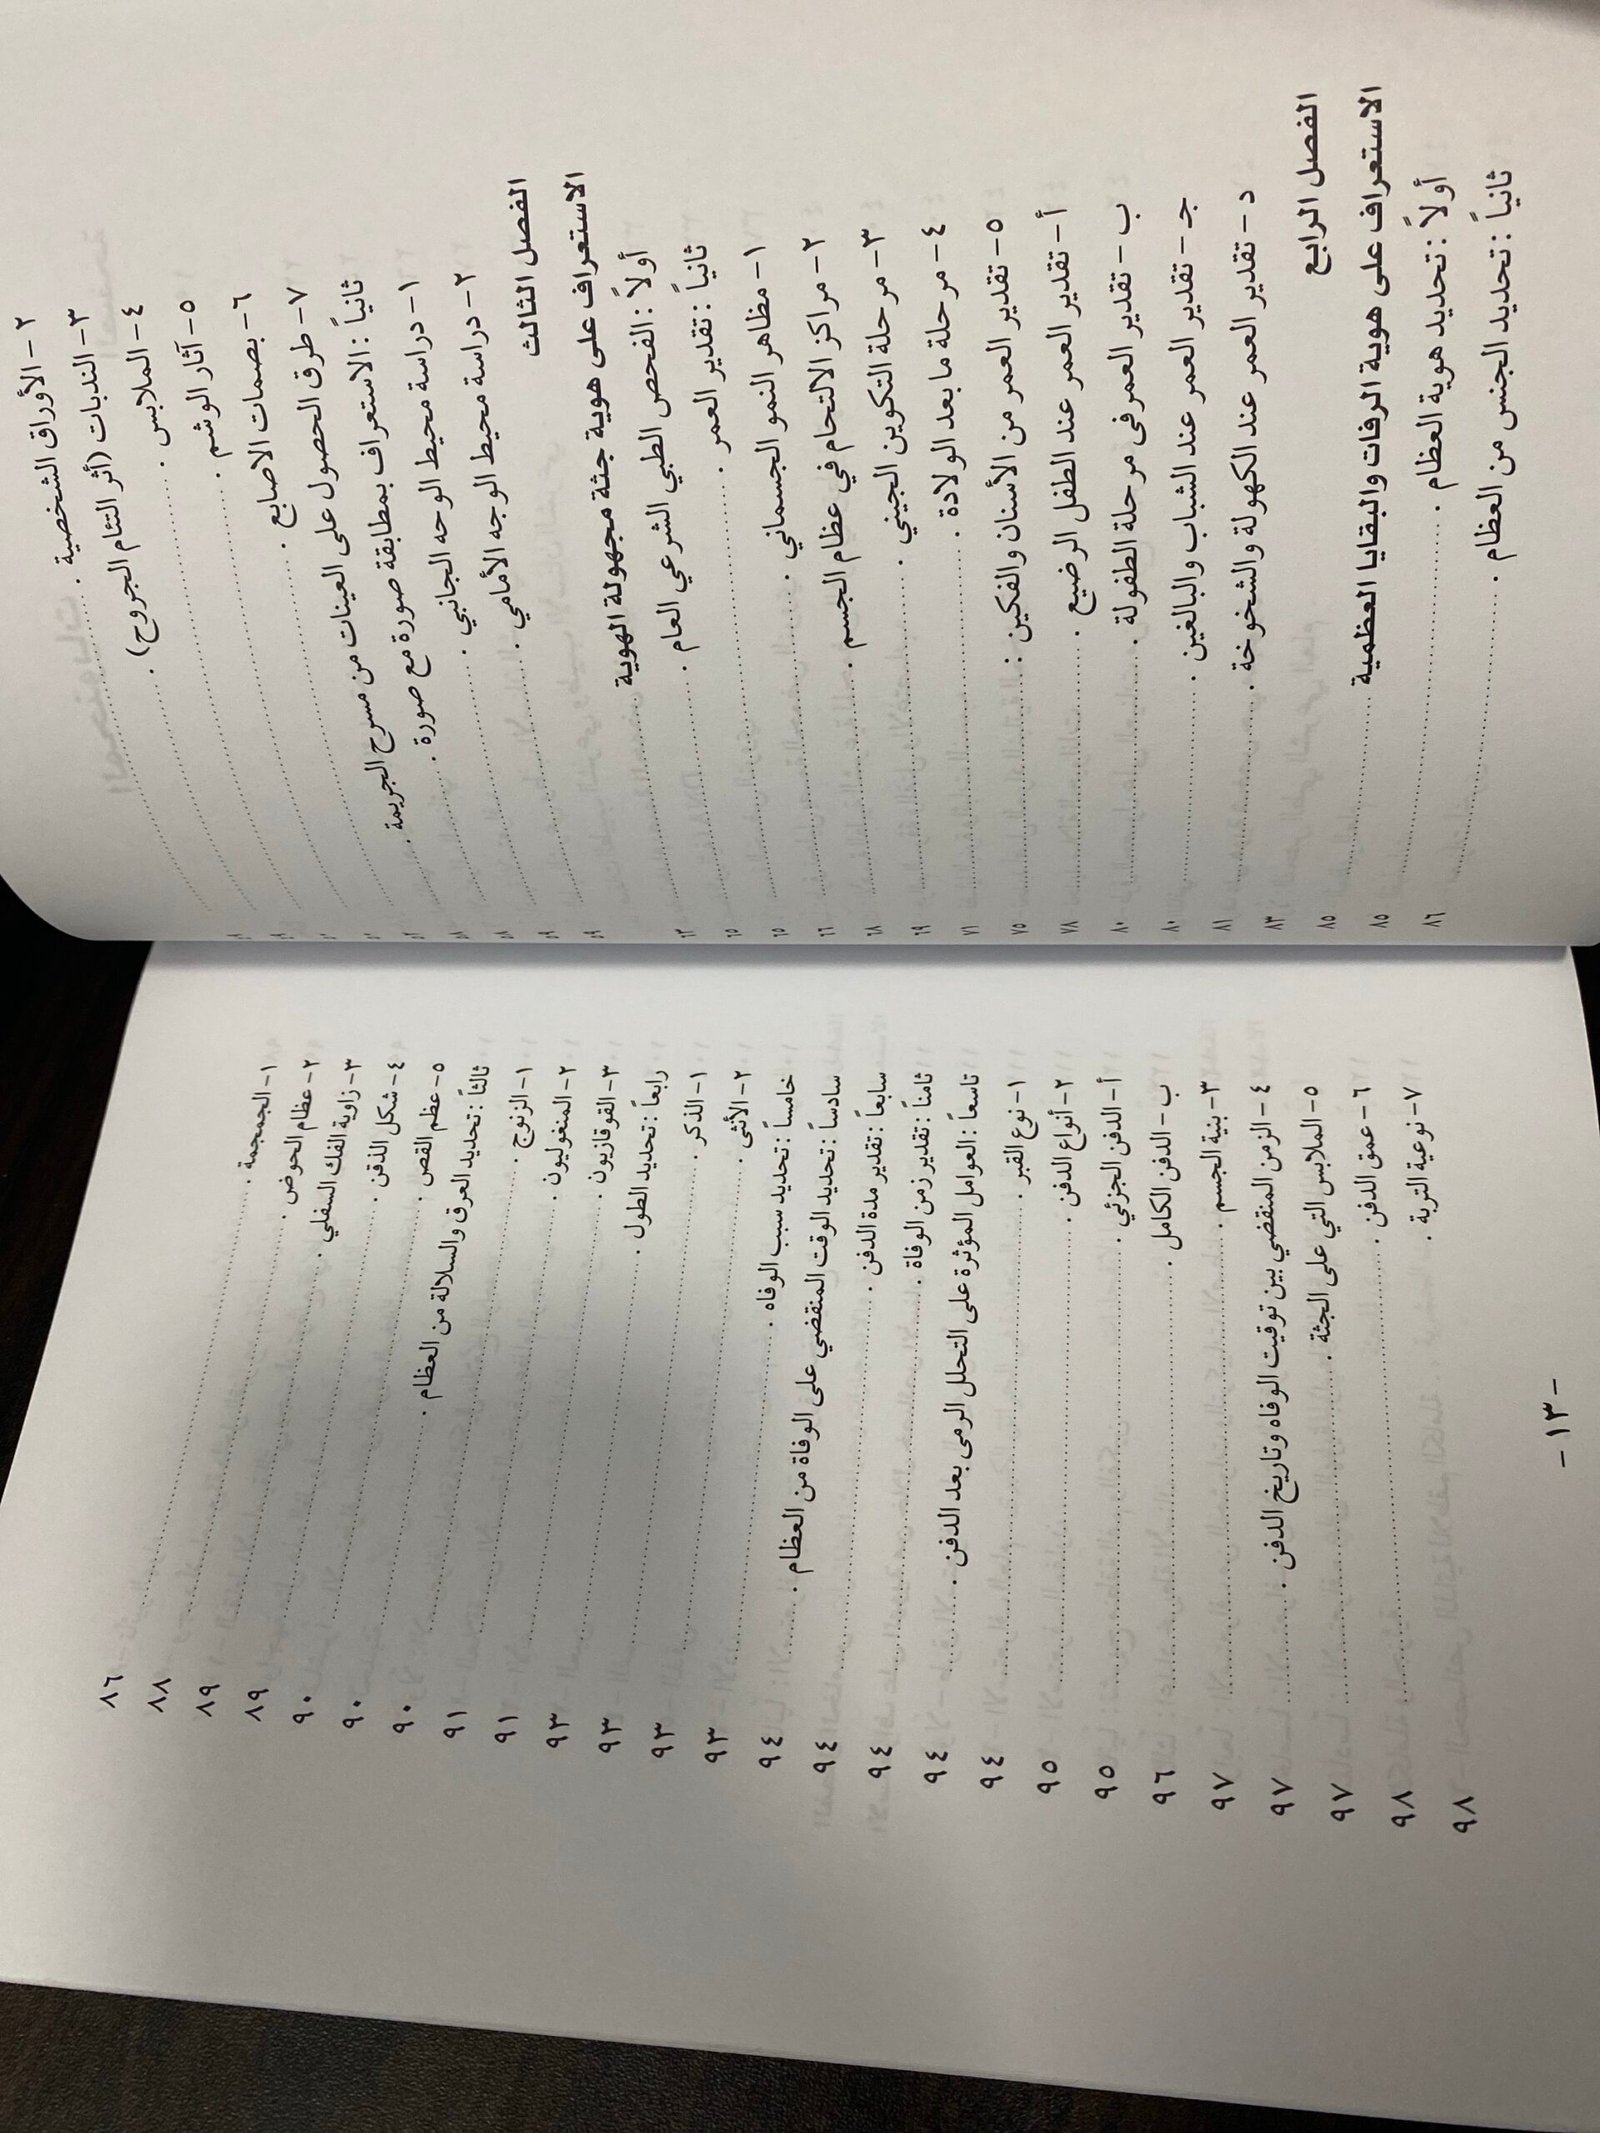 ٢- الأوراق الشخصية
٣- الندبات (أثر التئام الجروح)
٤- الملابس
٥- آثار الوشم
٦- بصمات الاصابع
٧- طرق الحصول على العينات من مسرح الجريمة
ثانياً : الاستعراف بمطابقة صورة مع صورة
١- دراسة محيط الوجه الجانبي
٢- دراسة محيط الوجه الأمامي
الفصل الثالث
الاستعراف على هوية جثة مجهولة الهوية
أولاً : الفحص الطبي الشرعي العام
ثانياً : تقدير العمر
١- مظاهر النمو الجسماني
٢- مراكز الالتحام في عظام الجسم
٣- مرحلة التكوين الجيني
٤- مرحلة ما بعد الولادة
٥- تقدير العمر من الأسنان والفكين :
أ- تقدير العمر عند الطفل الرضيع
ب- تقدير العمر فى مرحلة الطفولة
جـ- تقدير العمر عند الشباب والبالغين
د- تقدير العمر عند الكهولة والشخوخة
الفصل الرابع
الاستعراف على هوية الرفات والبقايا العظمية
أولاً : تحديد هوية العظام
ثانياً : تحديد الجنس من العظام
١- الجمجمة ٨٦
٢- عظام الحوض ٨٨
٣- زاوية الفك السفلي ٨٩
٤- شكل الذقن ٨٩
٥- عظم القص ٩٠
ثالثاً : تحديد العرق والسلالة من العظام ٩٠
١- الزنوج ٩٠
٢- المنغوليون ٩١
٣- القوقازيون ٩١
رابعاً : تحديد الطول ٩٣
١- الذكر ٩٣
٢- الأنثى ٩٣
خامساً : تحديد سبب الوفاه ٩٣
سادساً : تحديد الوقت المنقضي على الوفاة من العظام ٩٤
سابعاً : تقدير مدة الدفن ٩٤
ثامناً : تقدير زمن الوفاة ٩٤
تاسعاً : العوامل المؤثرة على التحلل الرمى بعد الدفن ٩٤
١- نوع القبر ٩٤
٢- أنواع الدفن ٩٥
أ- الدفن الجزئي ٩٥
ب- الدفن الكامل ٩٦
٣- بنية الجسم ٩٧
٤- الزمن المنقضي بين توقيت الوفاه وتاريخ الدفن ٩٧
٥- الملابس التي على الجثة ٩٧
٦- عمق الدفن ٩٨
٧- نوعية التربة ٩٨
- ١٣ -